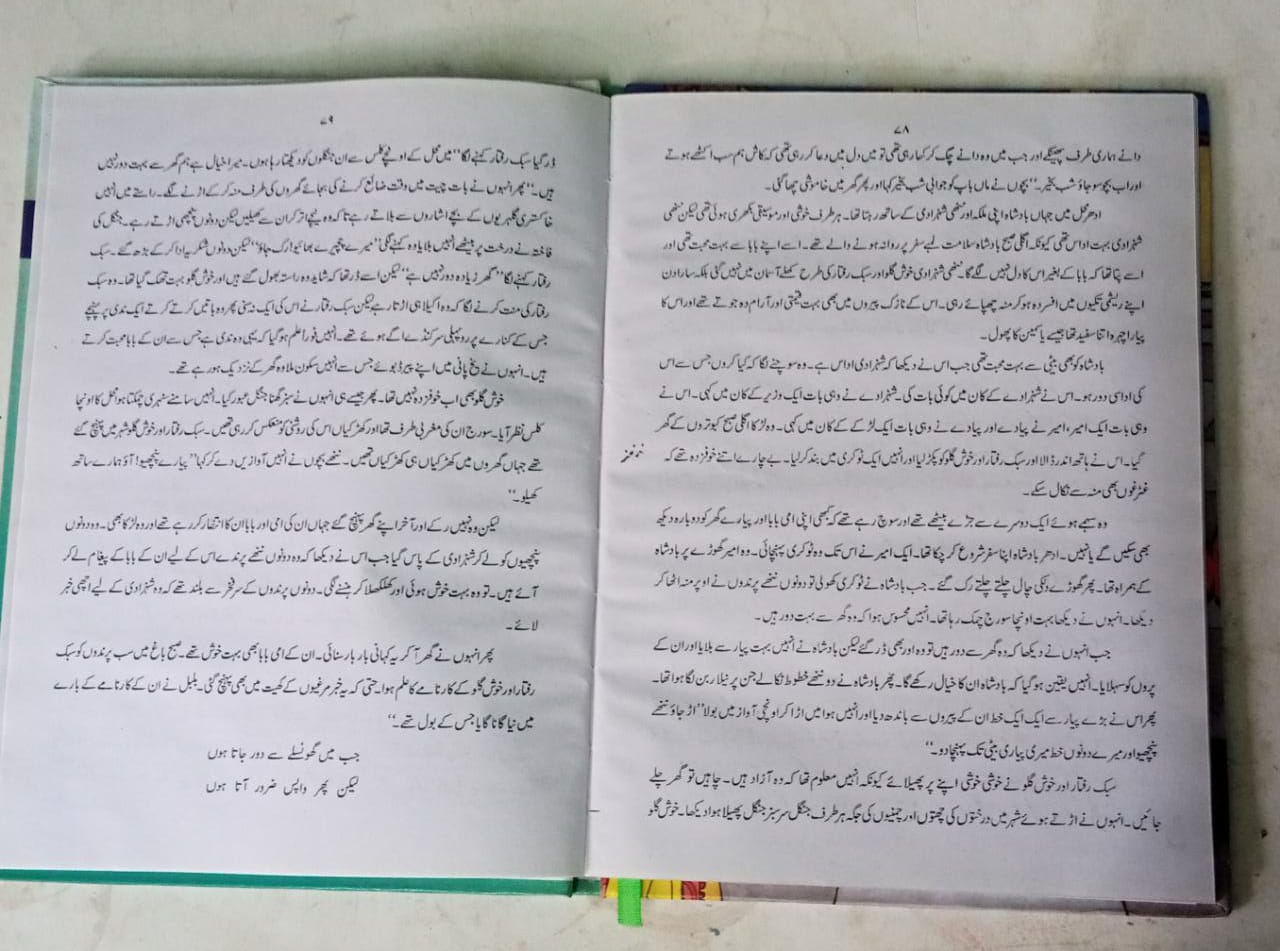 ۷۸
دانے ہماری طرف پھینکے اور جب میں وہ دانے چگ کر کھا رہی تھی تو میں دل میں دعا کر رہی تھی کہ کاش ہم سب اکٹھے ہوتے
اور اب بچو سو جاؤ شب بخیر۔“ بچوں نے ماں باپ کو جوابی شب بخیر کہا اور پھر گھر میں خاموشی چھا گئی۔
ادھر محل میں جہاں بادشاہ اپنی ملکہ اور ننھی شہزادی کے ساتھ رہتا تھا۔ ہر طرف خوشی اور موسیقی بکھری ہوئی تھی لیکن ننھی
شہزادی بہت اداس تھی کیونکہ اگلی صبح بادشاہ سلامت لمبے سفر پر روانہ ہونے والے تھے۔ اسے اپنے بابا سے بہت محبت تھی اور
اسے پتا تھا کہ بابا کے بغیر اس کا دل نہیں لگے گا۔ ننھی شہزادی خوش گلو اور سبک رفتار کی طرح کھلے آسمان میں نہیں گئی بلکہ سارا دن
اپنے ریشمی تکیوں میں افسردہ ہو کر منہ چھپائے رہی۔ اس کے نازک پیروں میں بھی بہت قیمتی اور آرام دہ جوتے تھے اور اس کا
پیارا چہرہ اتنا سفید تھا جیسے یاسمین کا پھول۔
بادشاہ کو بھی بیٹی سے بہت محبت تھی جب اس نے دیکھا کہ شہزادی اداس ہے۔ وہ سوچنے لگا کہ کیا کروں جس سے اس
کی اداسی دور ہو۔ اس نے شہزادے کے کان میں کوئی بات کی۔ شہزادے نے وہی بات ایک وزیر کے کان میں کہی۔ اس نے
وہی بات ایک امیر، امیر نے پیادے اور پیادے نے وہی بات ایک لڑکے کے کان میں کہی۔ وہ لڑکا اگلی صبح کبوتروں کے گھر
گیا۔ اس نے ہاتھ اندر ڈالا اور سبک رفتار اور خوش گلو کو پکڑ لیا اور انہیں ایک ٹوکری میں بند کر لیا۔ بے چارے اتنے خوفزدہ تھے کہ
غٹرغوں بھی منہ سے نکال سکے۔
وہ سہمے ہوئے ایک دوسرے سے جڑے بیٹھے تھے اور سوچ رہے تھے کہ کبھی اپنی امی بابا اور پیارے گھر کو دوبارہ دیکھ
بھی سکیں گے یا نہیں۔ ادھر بادشاہ اپنا سفر شروع کر چکا تھا۔ ایک امیر نے اس تک وہ ٹوکری پہنچائی۔ وہ امیر گھوڑے پر بادشاہ
کے ہمراہ تھا۔ پھر گھوڑے دلکی چال چلتے چلتے رک گئے۔ جب بادشاہ نے ٹوکری کھولی تو دونوں ننھے پرندوں نے اوپر منہ اٹھا کر
دیکھا۔ انہوں نے دیکھا بہت اونچا سورج چمک رہا تھا۔ انہیں محسوس ہوا کہ وہ گھ سے بہت دور ہیں۔
جب انہوں نے دیکھا کہ وہ گھر سے دور ہیں تو وہ اور بھی ڈر گئے لیکن بادشاہ نے انہیں بہت پیار سے بلایا اور ان کے
پروں کو سہلایا۔ انہیں یقین ہو گیا کہ بادشاہ ان کا خیال رکھے گا۔ پھر بادشاہ نے دو ننھے خطوط نکالے جن پر نیلا ربن لگا ہوا تھا۔
پھر اس نے بڑے پیار سے ایک ایک خط ان کے پیروں سے باندھ دیا اور انہیں ہوا میں اڑا کر اونچی آواز میں بولا ”اڑ جاؤ ننھے
پنچھیو اور میرے دونوں خط میری پیاری بیٹی تک پہنچا دو۔“
سبک رفتار اور خوش گلو نے خوشی خوشی اپنے پر پھیلائے کیونکہ انہیں معلوم تھا کہ وہ آزاد ہیں۔ چاہیں تو گھر چلے
جائیں۔ انہوں نے اڑتے ہوئے شہر میں درختوں کی چھتوں اور چمنیوں کی جگہ ہر طرف جنگل سرسبز جنگل پھیلا ہوا دیکھا۔ خوش گلو
۷۹
ڈر گیا سبک رفتار کہنے لگا ”میں محل کے اونچے کلس سے ان جنگلوں کو دیکھتا رہا ہوں۔ میرا خیال ہے ہم گھر سے بہت دور نہیں
ہیں۔“ پھر انہوں نے بات چیت میں وقت ضائع کرنے کی بجائے گھروں کی طرف منہ کر کے اڑنے لگے۔ راستے میں انہیں
خاکستری گلہریوں کے بچے اشاروں سے بلاتے رہے تا کہ وہ نیچے اتر کر ان سے کھیلیں لیکن دونوں پنچھی اڑتے رہے۔ جنگل کی
فاختہ نے درخت پر بیٹھے انہیں بلایا وہ کہنے لگی ”میرے چچیرے بھائیو! رک جاؤ“ لیکن دونوں شکریہ ادا کر کے بڑھ گئے۔ سبک
رفتار کہنے لگا ”گھر زیادہ دور نہیں ہے“ لیکن اسے ڈر تھا کہ شاید وہ راستہ بھول گئے ہیں اور خوش گلو بہت تھک گیا تھا۔ وہ سبک
رفتار کی منت کرنے لگا کہ وہ اکیلا ہی اڑتا رہے لیکن سبک رفتار نے اس کی ایک نہ سنی پھر وہ باتیں کرتے کرتے ایک ندی پر پہنچے
جس کے کنارے پر روپہلی سرکنڈے اگے ہوئے تھے۔ انہیں فوراً علم ہو گیا کہ یہی وہ ندی ہے جس سے ان کے بابا محبت کرتے
ہیں۔ انہوں نے یخ پانی میں اپنے پیر ڈبوئے جس سے انہیں سکون ملا وہ گھر کے نزدیک ہو رہے تھے۔
خوش گلو بھی اب خوفزدہ نہیں تھا۔ پھر جیسے ہی انہوں نے سبز گھنا جنگل عبور کیا۔ انہیں سامنے سنہری چمکتا ہوا محل کا اونچا
کلس نظر آیا۔ سورج ان کی مغربی طرف تھا اور کھڑکیاں اس کی روشنی کو منعکس کر رہی تھیں۔ سبک رفتار اور خوش گلو شہر میں پہنچ گئے
تھے جہاں گھروں میں کھڑکیاں ہی کھڑکیاں تھیں۔ ننھے بچوں نے انہیں آوازیں دے کر کہا ”پیارے پنچھیو! آؤ ہمارے ساتھ
کھیلو۔“
لیکن وہ نہیں رکے اور آخر اپنے گھر پہنچ گئے جہاں ان کی امی اور بابا ان کا انتظار کر رہے تھے اور وہ لڑکا بھی۔ وہ دونوں
پنچھیوں کو لے کر شہزادی کے پاس گیا جب اس نے دیکھا کہ وہ دونوں ننھے پرندے اس کے لیے ان کے بابا کے پیغام لے کر
آئے ہیں۔ تو وہ بہت خوش ہوئی اور کھلکھلا کر ہنسنے لگی۔ دونوں پرندوں کے سر فخر سے بلند تھے کہ وہ شہزادی کے لیے اچھی خبر
لائے۔
پھر انہوں نے گھر آ کر یہ کہانی بار بار سنائی۔ ان کے امی بابا بھی بہت خوش تھے۔ صبح باغ میں سب پرندوں کو سبک
رفتار اور خوش گلو کے کارنامے کا علم ہوا۔ حتیٰ کہ یہ خبر مرغیوں کے کھیت میں بھی پہنچ گئی۔ بلبل نے ان کے کارنامے کے بارے
میں نیا گانا گایا جس کے بول تھے۔“
جب میں گھونسلے سے دور جاتا ہوں
لیکن پھر واپس ضرور آتا ہوں